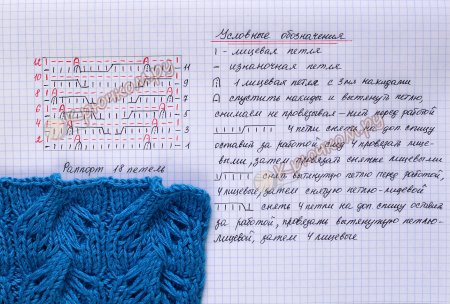 Условные обозначения
| - лицевая петля
– - изнаночная петля
1 лицевая петля с 3мя накидами
спустить накиды и вытянуть петлю,
снимаем не провязывая - нить перед работой
4 петли снять на доп спицу
оставив за работой, след 4 провязать лице-
выми, затем провязать снятые лицевыми
снять вытянутую петлю перед работой,
4 лицевые, затем снятую петлю-лицевой
снять 4 петли на доп спицу оставив
за работой, провязать вытянутую петлю-
лицевой, затем 4 лицевые
12
11
10
9
8
7
6
5
4
3
2
1
Раппорт 18 петель